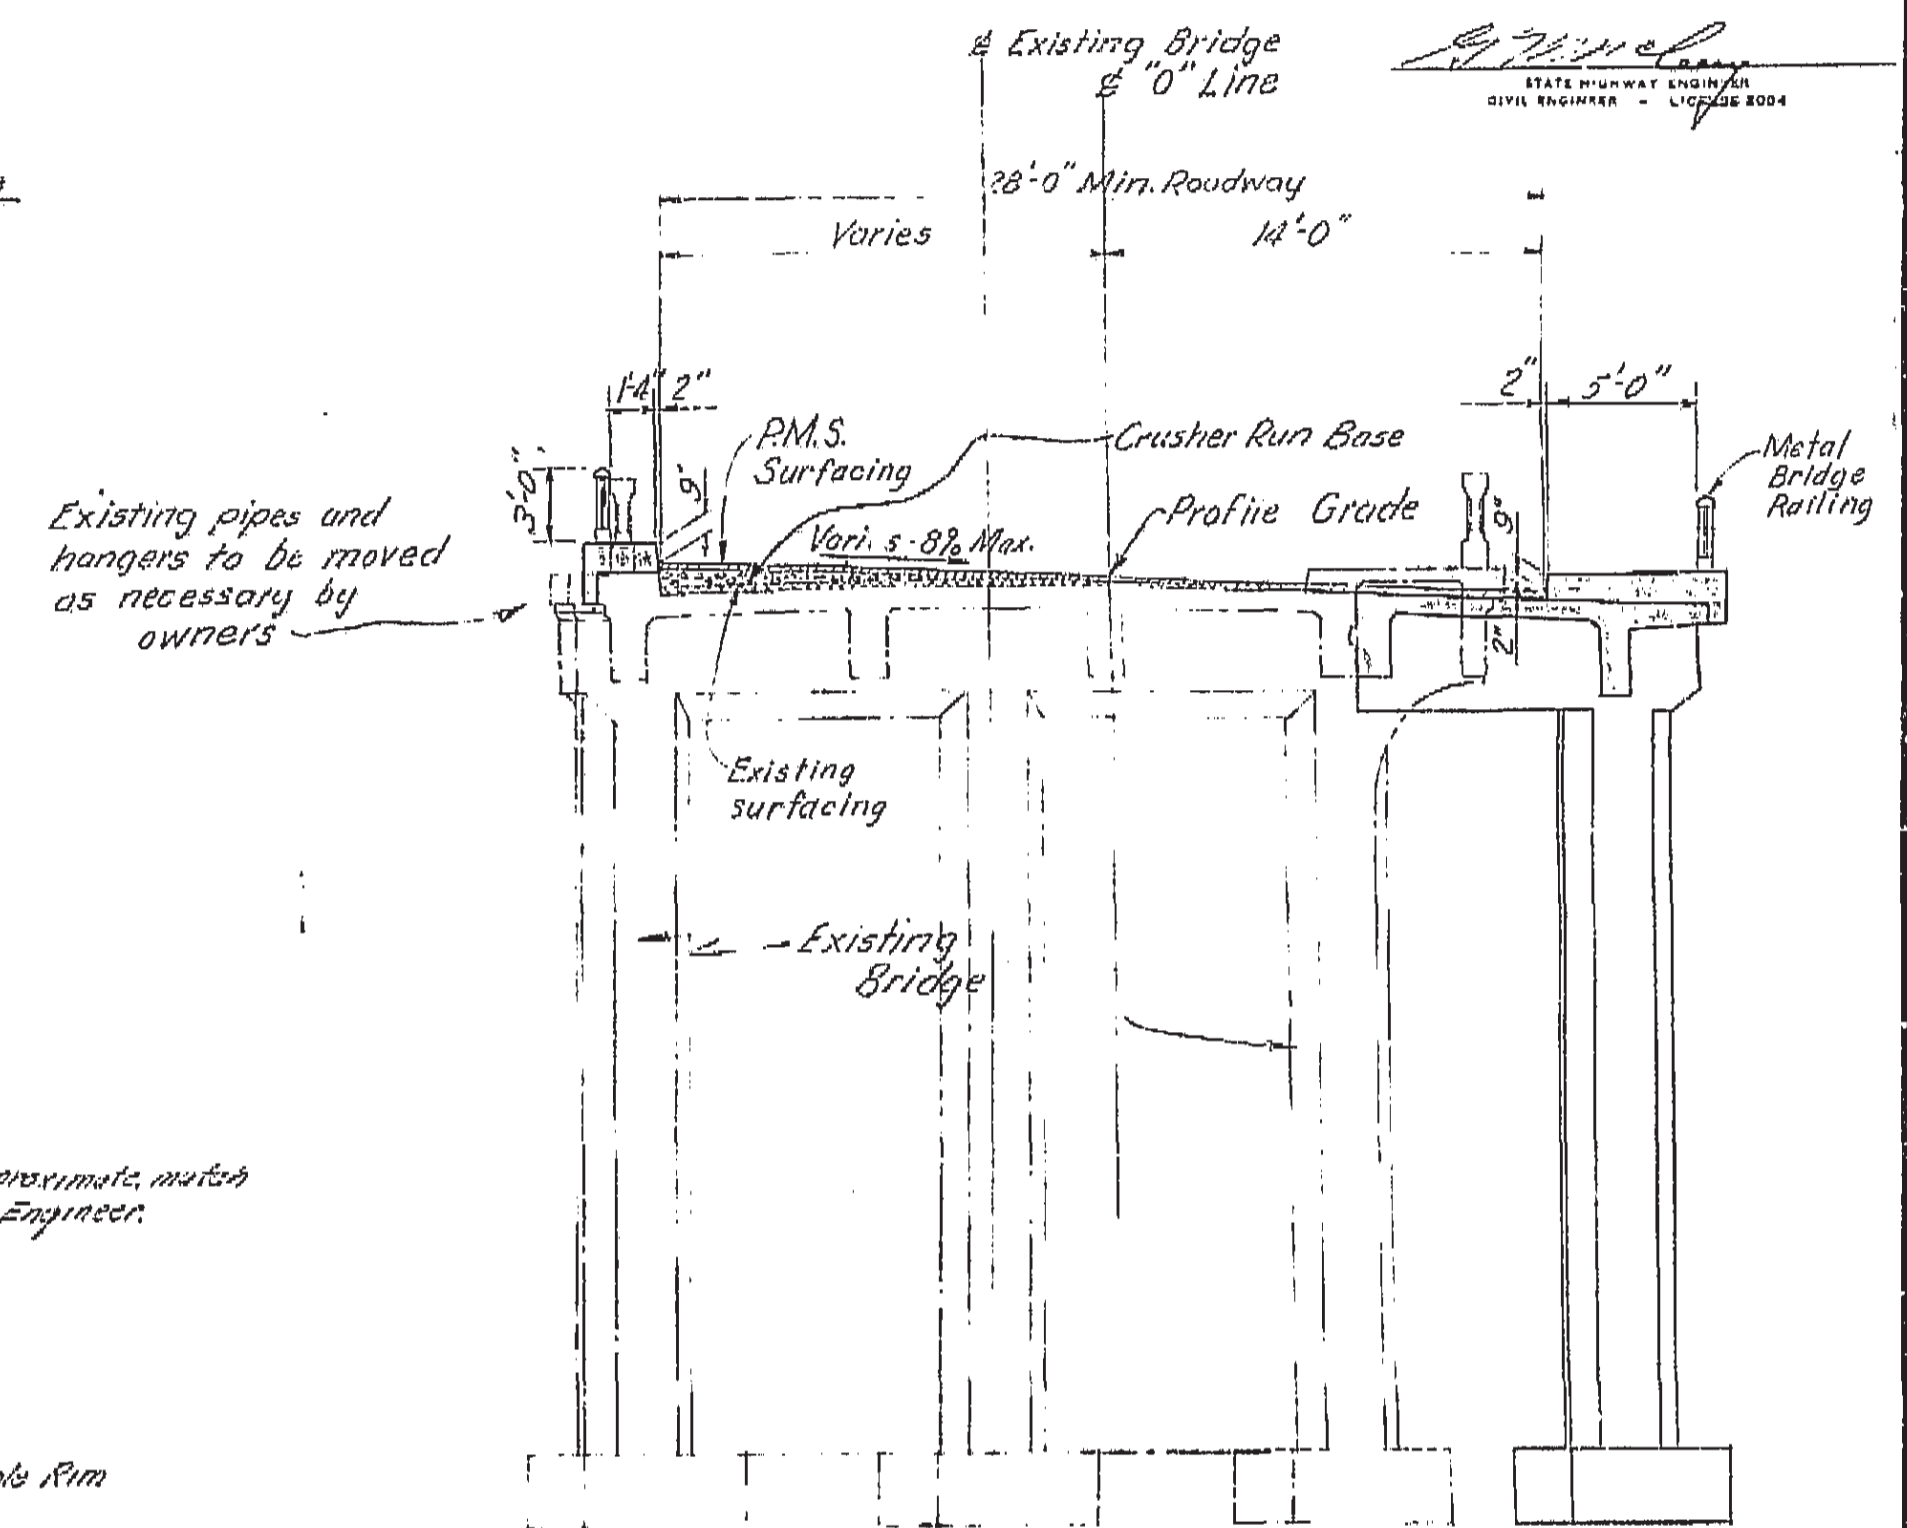 ℄ Existing Bridge
℄ "O" Line
STATE HIGHWAY ENGINEER
CIVIL ENGINEER - LICENSE 2004
28'-0" Min. Roadway
Varies
14'-0"
1'-4"
2"
2"
5'-0"
P.M.S.
Surfacing
Crusher Run Base
Metal
Bridge
Railing
3'-0"
9"
9"
Profile Grade
Existing pipes and
hangers to be moved
as necessary by
owners
8% Max.
2"
Existing
surfacing
Existing
Bridge
match
Engineer.
Rim